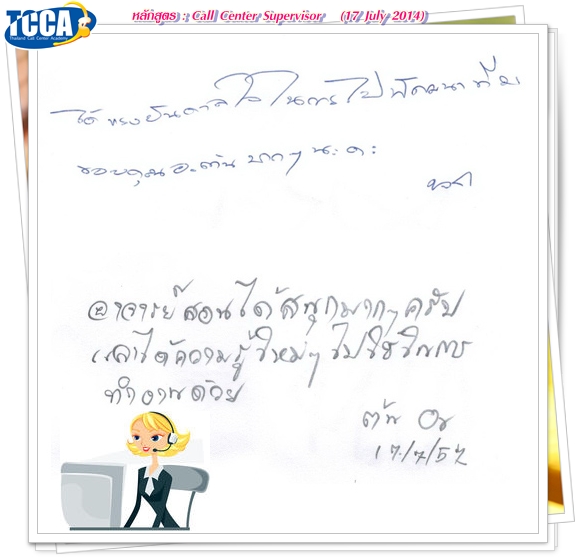 TCCA
Thailand Call Center Academy
หลักสูตร : Call Center Supervisor (17 July 2014)
ได้แรงบันดาลใจในการไปพัฒนาทีม
ขอบคุณอ.ต้นมากๆ นะคะ
อาจารย์สอนได้สนุกมากๆครับ
และได้ความรู้ใหม่ๆ ไปใช้ในการ
ทำงานด้วย
ต้น
17/7/57